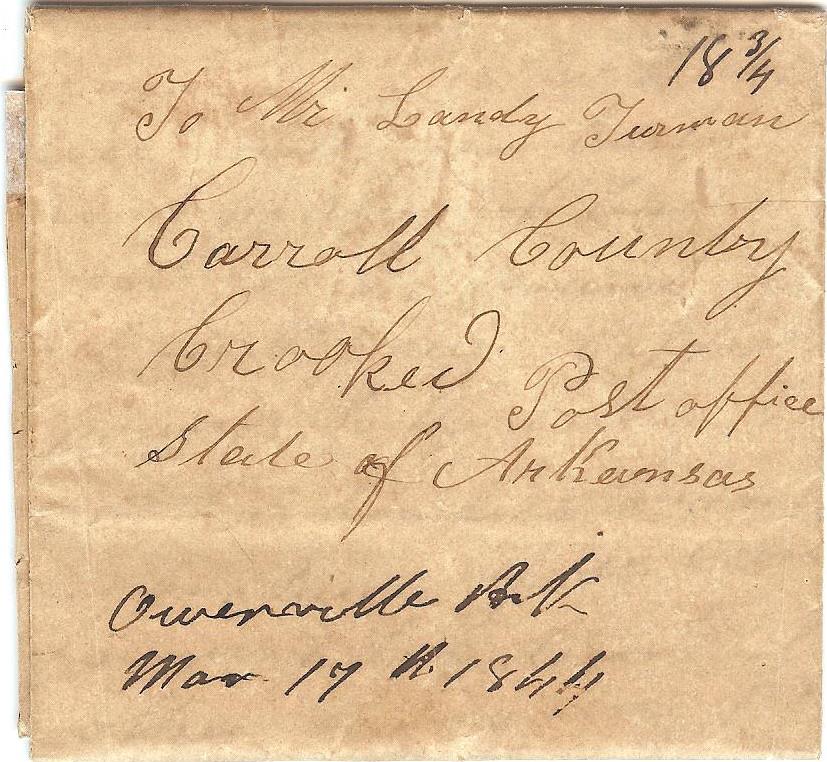 18 3/4
To Mr Landy Turman
Carroll County
Crooked Post office
State of Arkansas
Owenville Ark
Mar 17th 1844